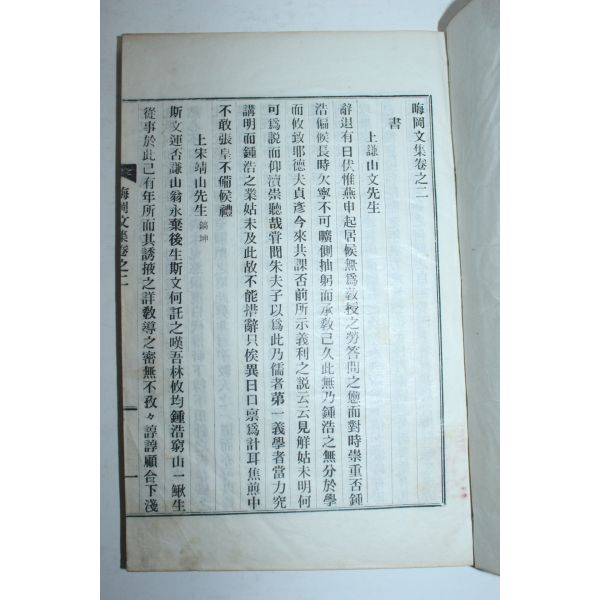 晦岡文集卷之二
書
上謙山文先生
辭退有日伏惟燕申起居候無爲敎授之勞答問之憊而對時崇重否鍾
浩偏候長時欠寧不可曠側抽躬而承敎已久此無乃鍾浩之無分於學
而攸致耶德夫貞彥今來共課否前所示義利之說云云見解姑未明何
可爲說而仰瀆崇聽哉甞聞朱夫子以爲此乃儒者第一義學者當力究
講明而鍾浩之業姑未及此故不能措辭只俟異日口稟爲計耳焦煎中
不敢張皇不備候禮
上宋靖山先生 鎬坤
斯文運否謙山翁永棄後生斯文何託之嘆吾林攸均鍾浩窮山一鰍生
從事於此已有年所而其誘掖之詳敎導之密無不孜々諄諄顧合下淺
晦岡文集卷之二
一